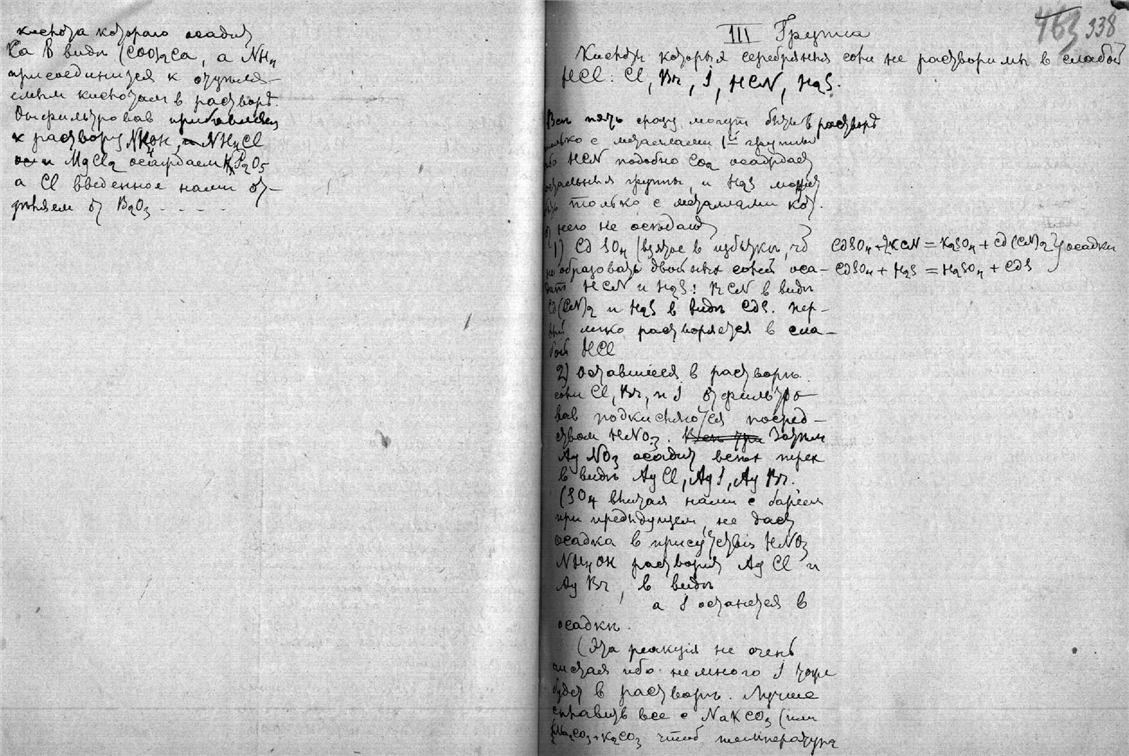 кислота котораго осадитъ
Ca въ видѣ (COO)2Ca, а NH4
присоединится к
кислотамъ в растворѣ.
Отфильтровав прибавляем
к раствору NH4OH, NH4Cl
и MgCl2 осаждаем P2O5
а Cl введенное нами
от B2O3 - - - -
463 338
III Группа
Кислоты которыя серебряныя соли не растворимы в слабой
HCl: Cl, Br, I, HCN, H2S.
Всѣ пять сразу могут быть в растворѣ
только с металлами 1ой группы
HCN подобно CO2 осаждает
остальныя группы, и H2S может
быть только с металлами кот.
него не осѣдают
1) CdSO4 (взятое в избыткѣ, чтоб
не образовать двойных солей оса-
HCN и H2S: KCN в видѣ
Cd(CN)2 и H2S в видѣ CdS. пер-
вый легко растворяется в сла-
бой HCl
CdSO4 + 2KCN = K2SO4 + Cd(CN)2 } осадки
CdSO4 + H2S = H2SO4 + CdS
2) Оставшіеся в растворѣ
соли Cl, Br, и I отфильтро-
вав подкисляются посред-
ством HNO3. Затѣм
AgNO3 осадит всѣх трех
в видѣ AgCl, AgI, AgBr.
(SO4 нами с баріем
при предыдущем, не даст
осадка в присутствіи HNO3
NH4OH растворит AgCl и
AgBr, в видѣ
а I останется в
осадкѣ.
(Эта реакція не очень
чистая ибо немного I тоже
будет в растворѣ. Лучше
сплавить все с NaKCO3 (или
Na2CO3+K2CO3 чтоб температура